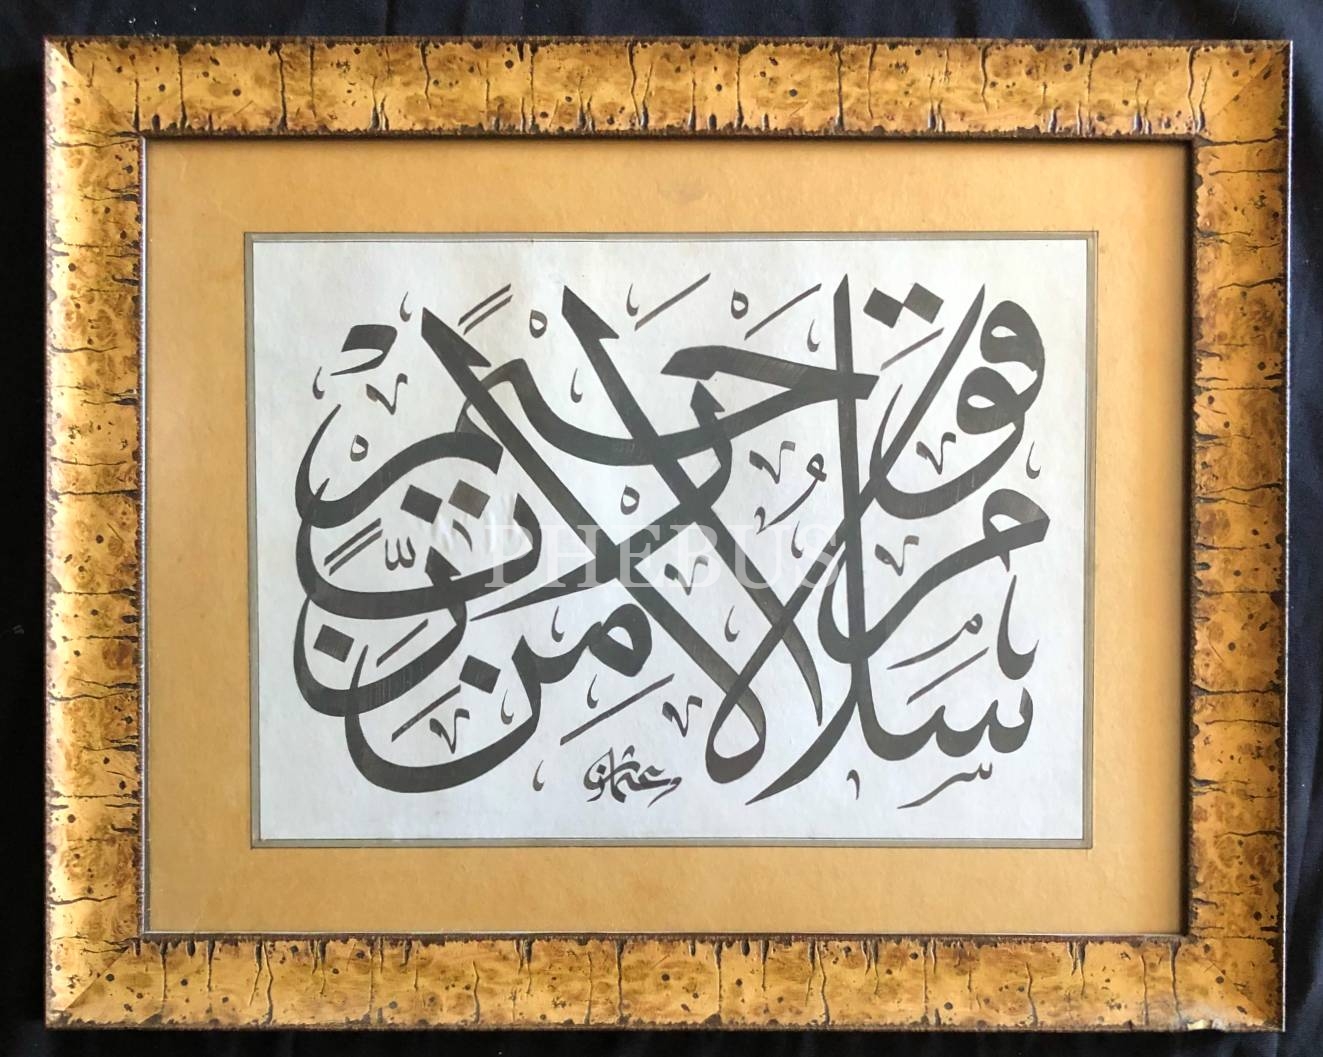 سَلَامٌ قَوْلًا مِنْ رَبٍّ رَحِيمٍ
PHEBUS